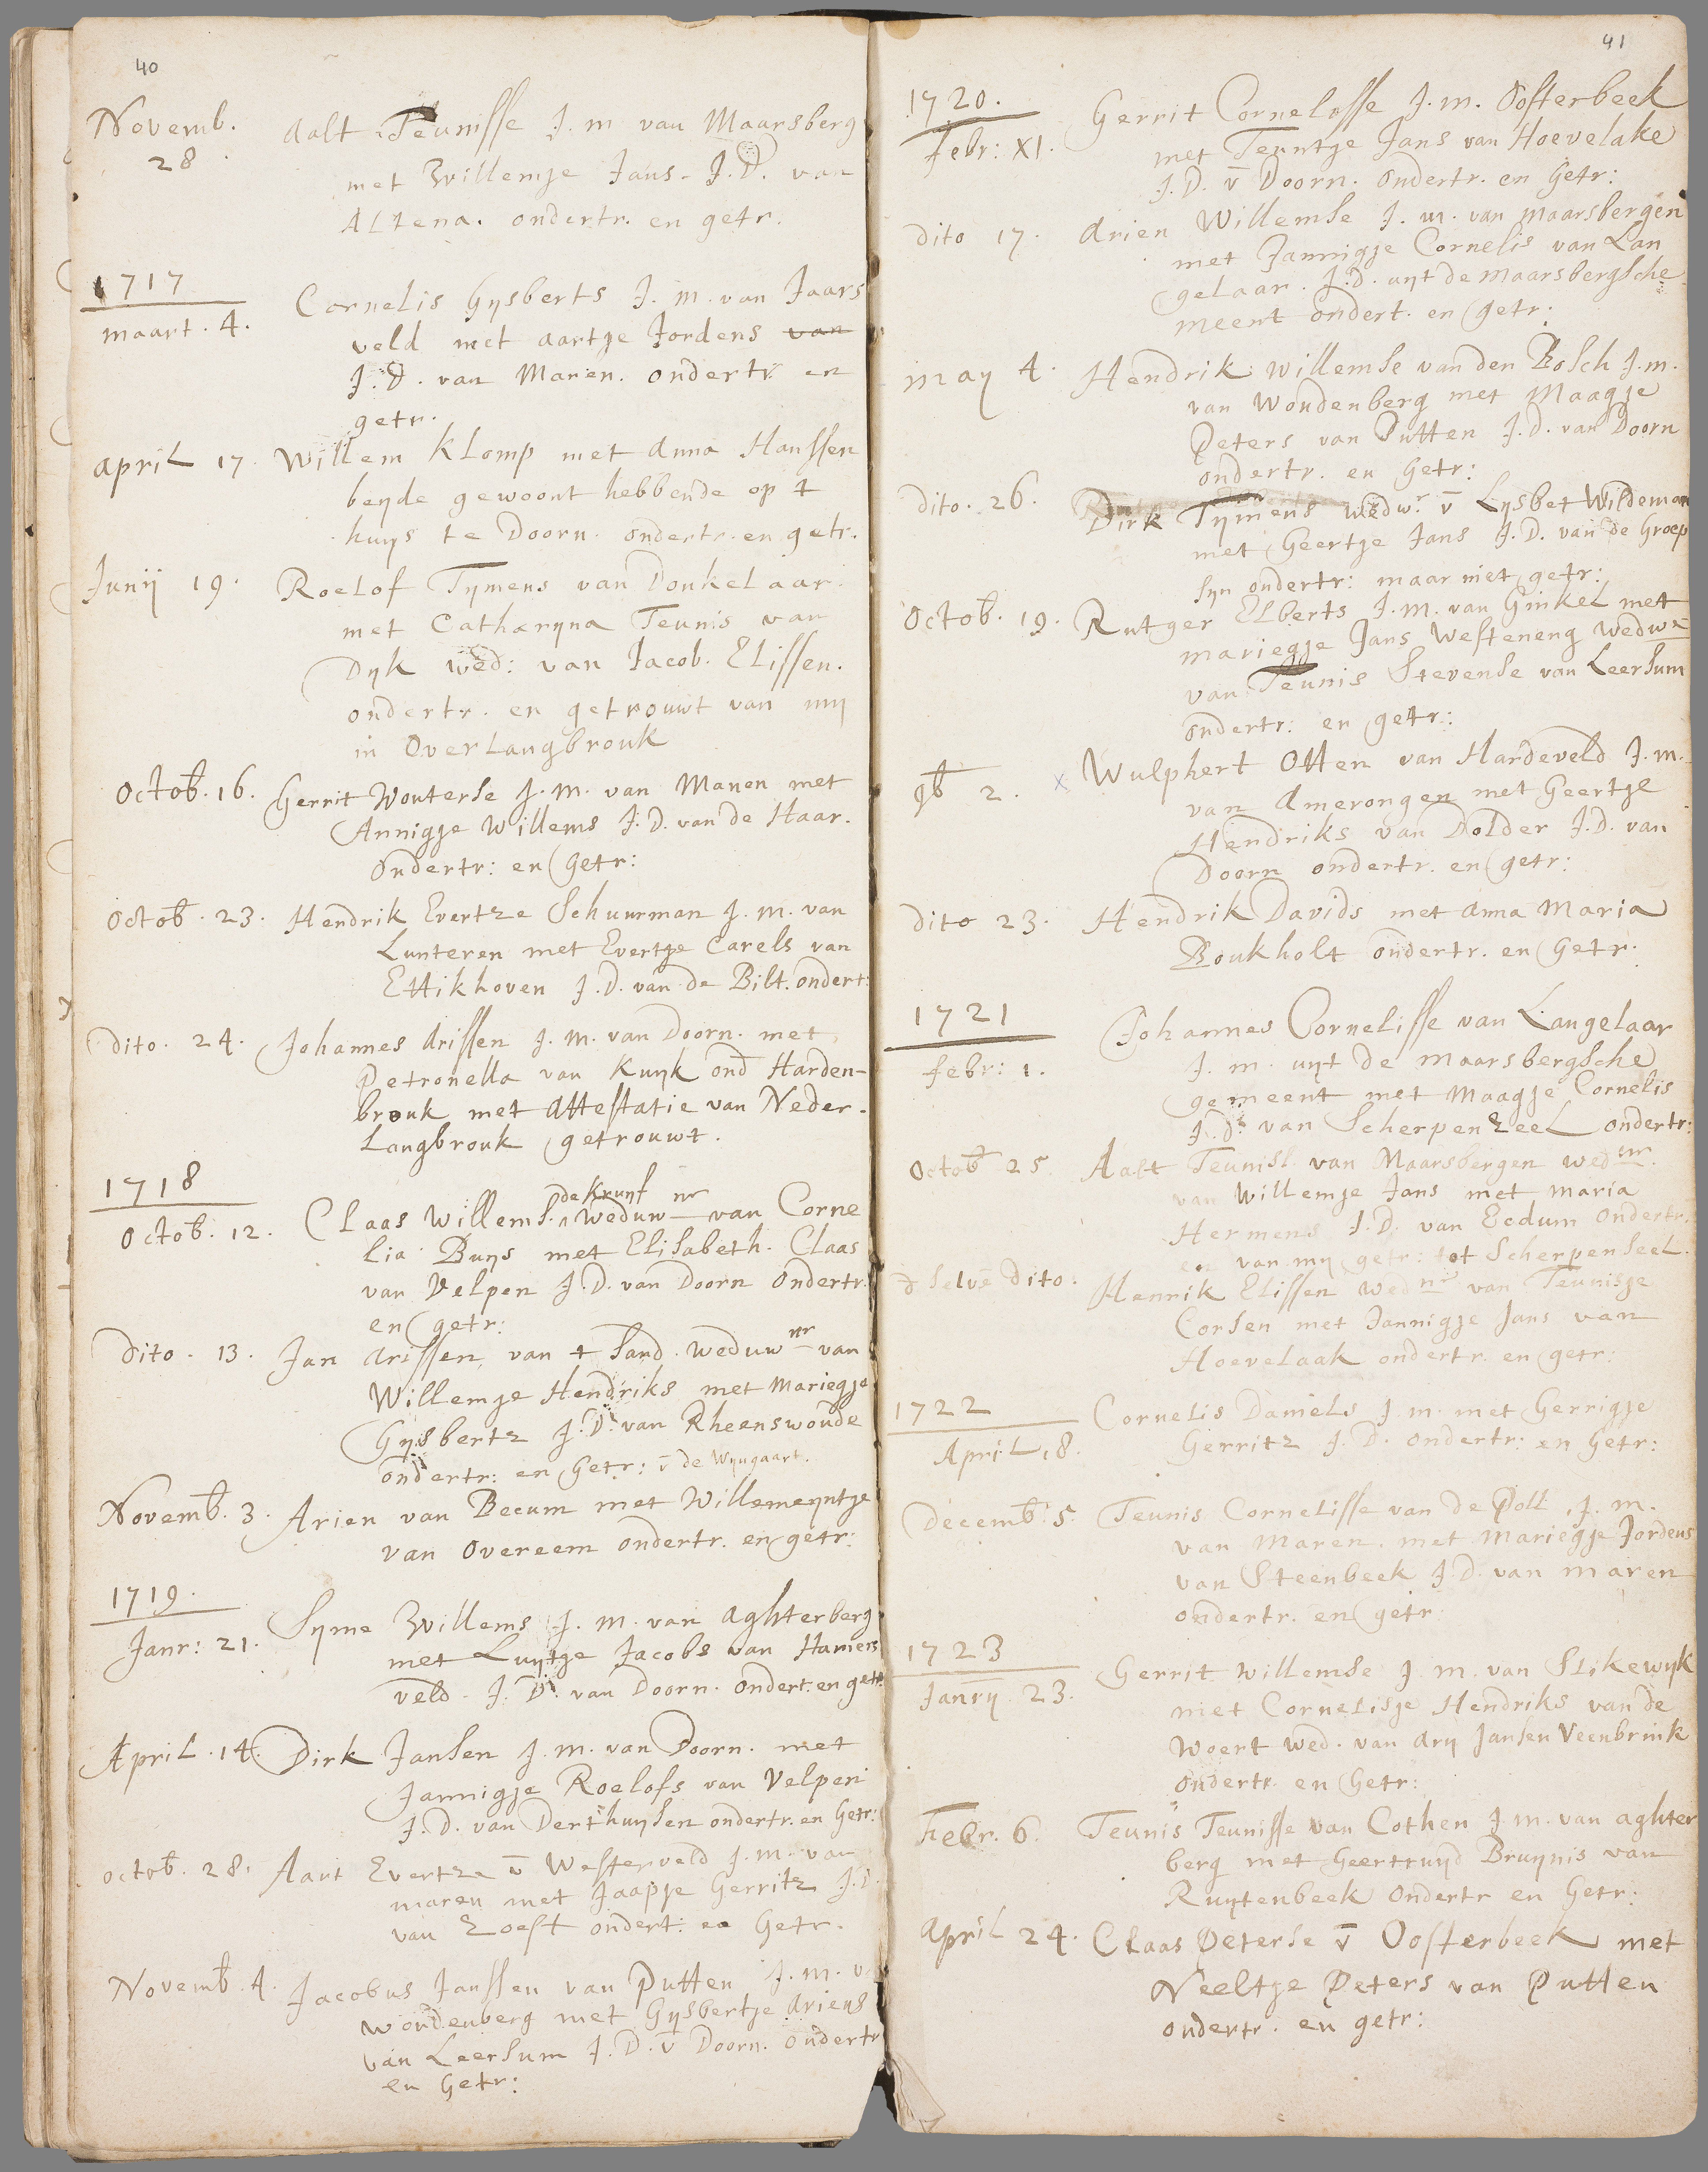 40
Novemb. 28 Aalt Teunisse J. m van Maarsberg
met Willemje Jans. J. D. van
Altena. ondertr. en getr.
1717
maart. 4. Cornelis Gysberts J. m. van Jaars
veld met aartje Jordens van
J. D. van Maren. ondertr. en
getr.
april 17. Willem Klomp met Anna Hanssen
beyde gewoont hebbende op t
huys te Doorn. ondertr. en getr.
Junij 19. Roelof Tymens van Donkelaar
met Catharyna Teunis van
Dyk wed: van Jacob. Elissen.
ondertr. en getrouwt van my
in Overlangbrouk
Octob. 16. Gerrit Wouterse J. m. van Manen met
Annigje Willems J. D. van de Haar.
Ondertr: en Getr:
Octob. 23. Hendrik Evertze Schuurman J. m. van
Lunteren met Evertje Carels van
Ettikhoven J. D. van de Bilt. ondert:
Dito. 24. Johannes Arissen J. m. van Doorn. met
Petronella van Kuyk ond Harden-
brouk met Attestatie van Neder-
Langbrouk getrouwt.
1718
Octob. 12. Claas Willems. de Kruyf weduwnr van Corne
lia Buys met Elisabeth. Claas
van Velpen J. D. van Doorn Ondertr.
en getr:
Dito. 13. Jan Arissen van t Sand. weduwnr van
Willemje Hendriks met Mariegje
Gysbertz J. D. van Rheenswoude
ondertr: en Getr: v̄ de Wyngaart.
Novemb. 3. Arien van Becum met Willemeyntje
van Overeem ondertr. en getr:
1719.
Janr: 21. Syme Willems J. m. van Aghterberg
met Luytje Jacobs van Hamers
veld. J. D. van Doorn. Ondert. en getr.
April. 14. Dirk Jansen J. m. van Doorn. met
Jannigje Roelofs van Velpen
J. D. van Derthuysen ondertr. en Getr:
octob. 28. Aart Evertze v̄ Westerveld J. m. van
maren met Jaapje Gerritz J. D.
van Zoest ondert: en Getr.
Novemb. 4. Jacobus Janssen van Putten J. m. v
woudenberg met Gysbertje Ariens
van Leersum J. D. v̄ Doorn. ondertr
en Getr:
41
1720.
Febr: XI. Gerrit Cornelosse J. m. Oosterbeek
met Teuntje Jans van Hoevelake
J. D. v̄ Doorn. Ondertr. en Getr:
Dito 17. Arien Willemse J. m. van Maarsbergen
met Jannigje Cornelis van Lan
gelaar. J. D. uyt de Maarsbergsche
meent ondert. en getr:
may 4. Hendrik Willemse van den Bosch J. m.
van Woudenberg met Maagje
Peters van Putten J. D. van Doorn
ondertr. en Getr:
Dito. 26. Dirk Tymens wedwr. v̄ Lysbet Wildeman
met Geertje Jans J. D. van de Groep
syn ondertr: maar niet getr:
Octob. 19. Rutger Elberts J. m. van Ginkel met
mariegje Jans Westeneng wedwe
van Teunis Stevense van Leersum
ondertr: en getr:
9b 2. x Wulphert Otten van Hardeveld J. m.
van Amerongen met Geertje
Hendriks van Dolder J. D. van
Doorn ondertr. en getr:
Dito 23. Hendrik Davids met Anna Maria
Boukholt ondertr. en Getr.
1721
Febr: 1. Johannes Cornelisse van Langelaar
J. m. uyt de maarsbergsche
gemeent met Maagje Cornelis
J. D. van Scherpenzeel ondertr:
Octob 25. Aalt Teunisl. van Maarsbergen wedur.
van Willemje Jans met maria
Hermens J. D. van Ecdum Ondertr.
en van my getr: tot Scherpenseel.
d selve dito. Henrik Elissen wednr van Teunisje
Corsen met Jannigje Jans van
Hoevelaak ondertr. en getr:
1722
April 18. Cornelis Daniels J. m. met Gerrigje
Gerritz J. D. Ondertr: en Getr:
Decemb. 5. Teunis Cornelisse van de Poll J. m.
van Maren. met Mariegje Jordens
van Steenbeek J. D. van maren
ondertr. en getr
1723
Janrij. 23. Gerrit Willemse J. m. van Stikewyk
met Cornelisje Hendriks van de
Woert wed. van Ary Jansen Veenbrink
ondertr. en Getr:
Febr. 6. Teunis Teunisse van Cothen J. m. van aghter
berg met Geertruyd Bruynis van
Ruytenbeek Ondertr en Getr:
April 24. Claas Peterse v̄ Oosterbeek met
Neeltje Peters van Putten
ondertr. en getr: